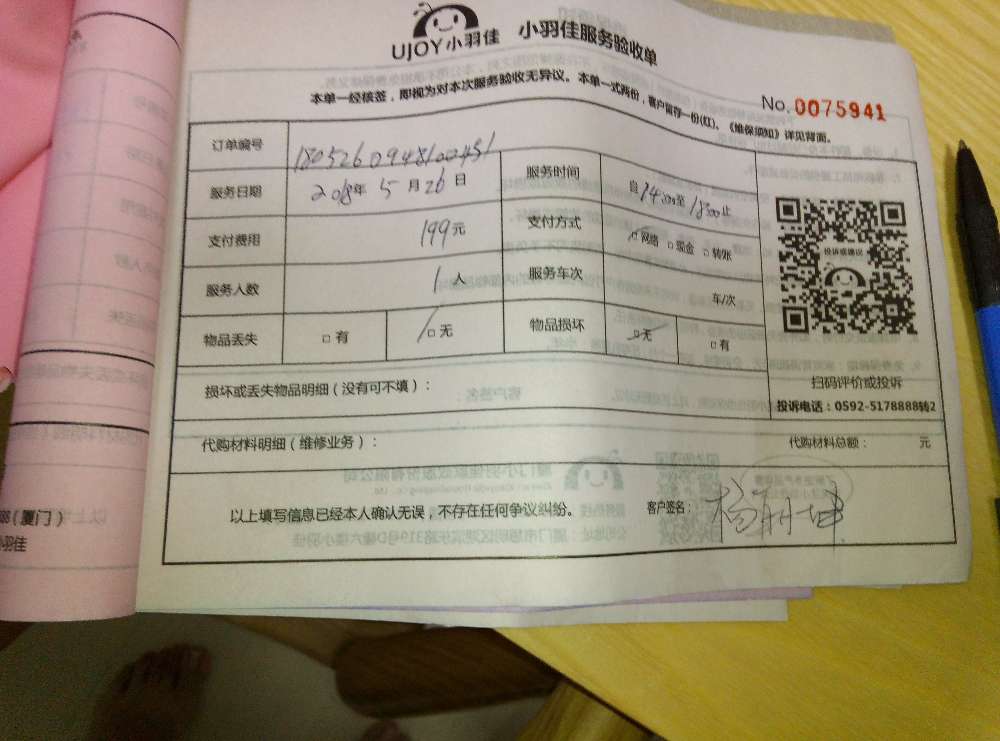 UJOY小羽佳 小羽佳服务验收单
本单一经核签，即视为对本次服务验收无异议。本单一式两份，客户留存一份(红)。《维保须知》详见背面。
No.0075941
订单编号 1805260948100451
服务日期 2018年 5 月 26 日 服务时间 自 1400 至 1800 止
支付费用 199 元 支付方式 □网络 □现金 □转账
服务人数 1 人 服务车次 车/次
物品丢失 □有 □无 物品损坏 □无 □有
投诉或建议
扫码评价或投诉
投诉电话：0592-5178888转2
损坏或丢失物品明细（没有可不填）：
代购材料明细（维修业务）： 代购材料总额： 元
以上填写信息已经本人确认无误，不存在任何争议纠纷。 客户签名： 杨
（厦门）
羽佳